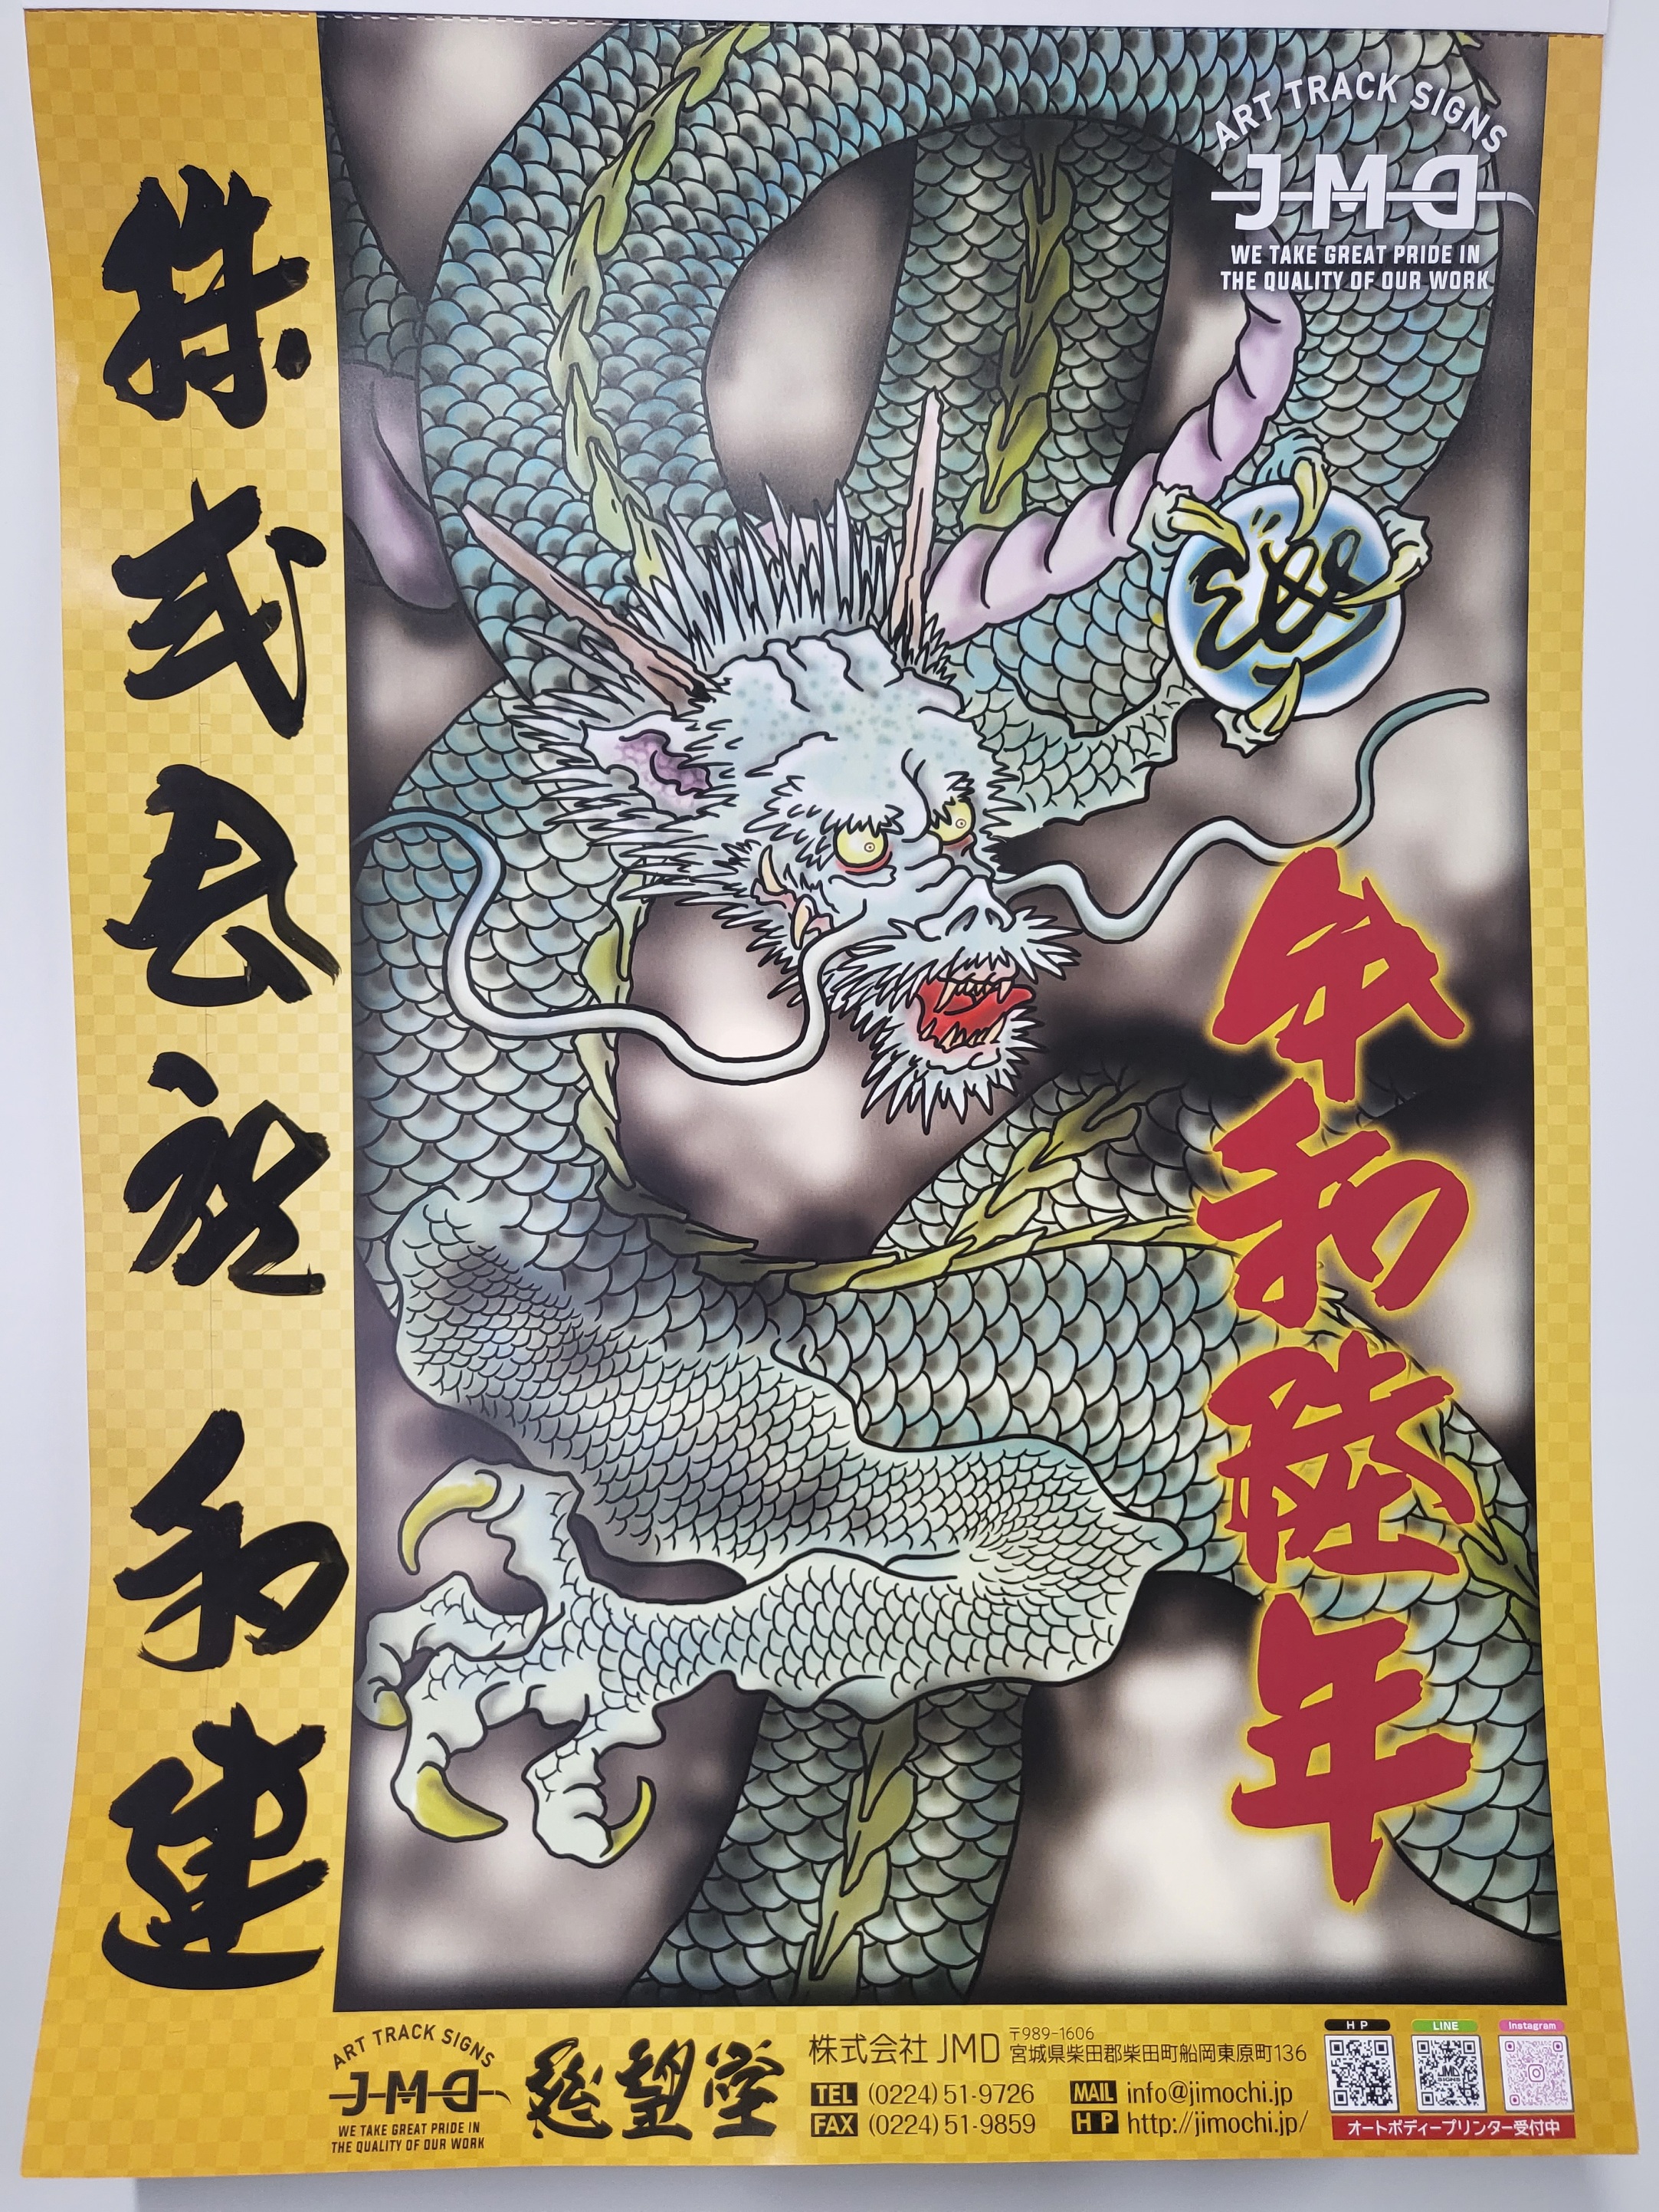 ART TRACK SIGNS
JMD
WE TAKE GREAT PRIDE IN
THE QUALITY OF OUR WORK
令和陸年
株式会社和建
ART TRACK SIGNS
JMD
WE TAKE GREAT PRIDE IN
THE QUALITY OF OUR WORK
株式会社 JMD
〒989-1606
宮城県柴田郡柴田町船岡東原町136
TEL (0224) 51-9726
MAIL info@jimochi.jp
FAX (0224) 51-9859
HP http://jimochi.jp/
HP
LINE
Instagram
オートボディープリンター受付中